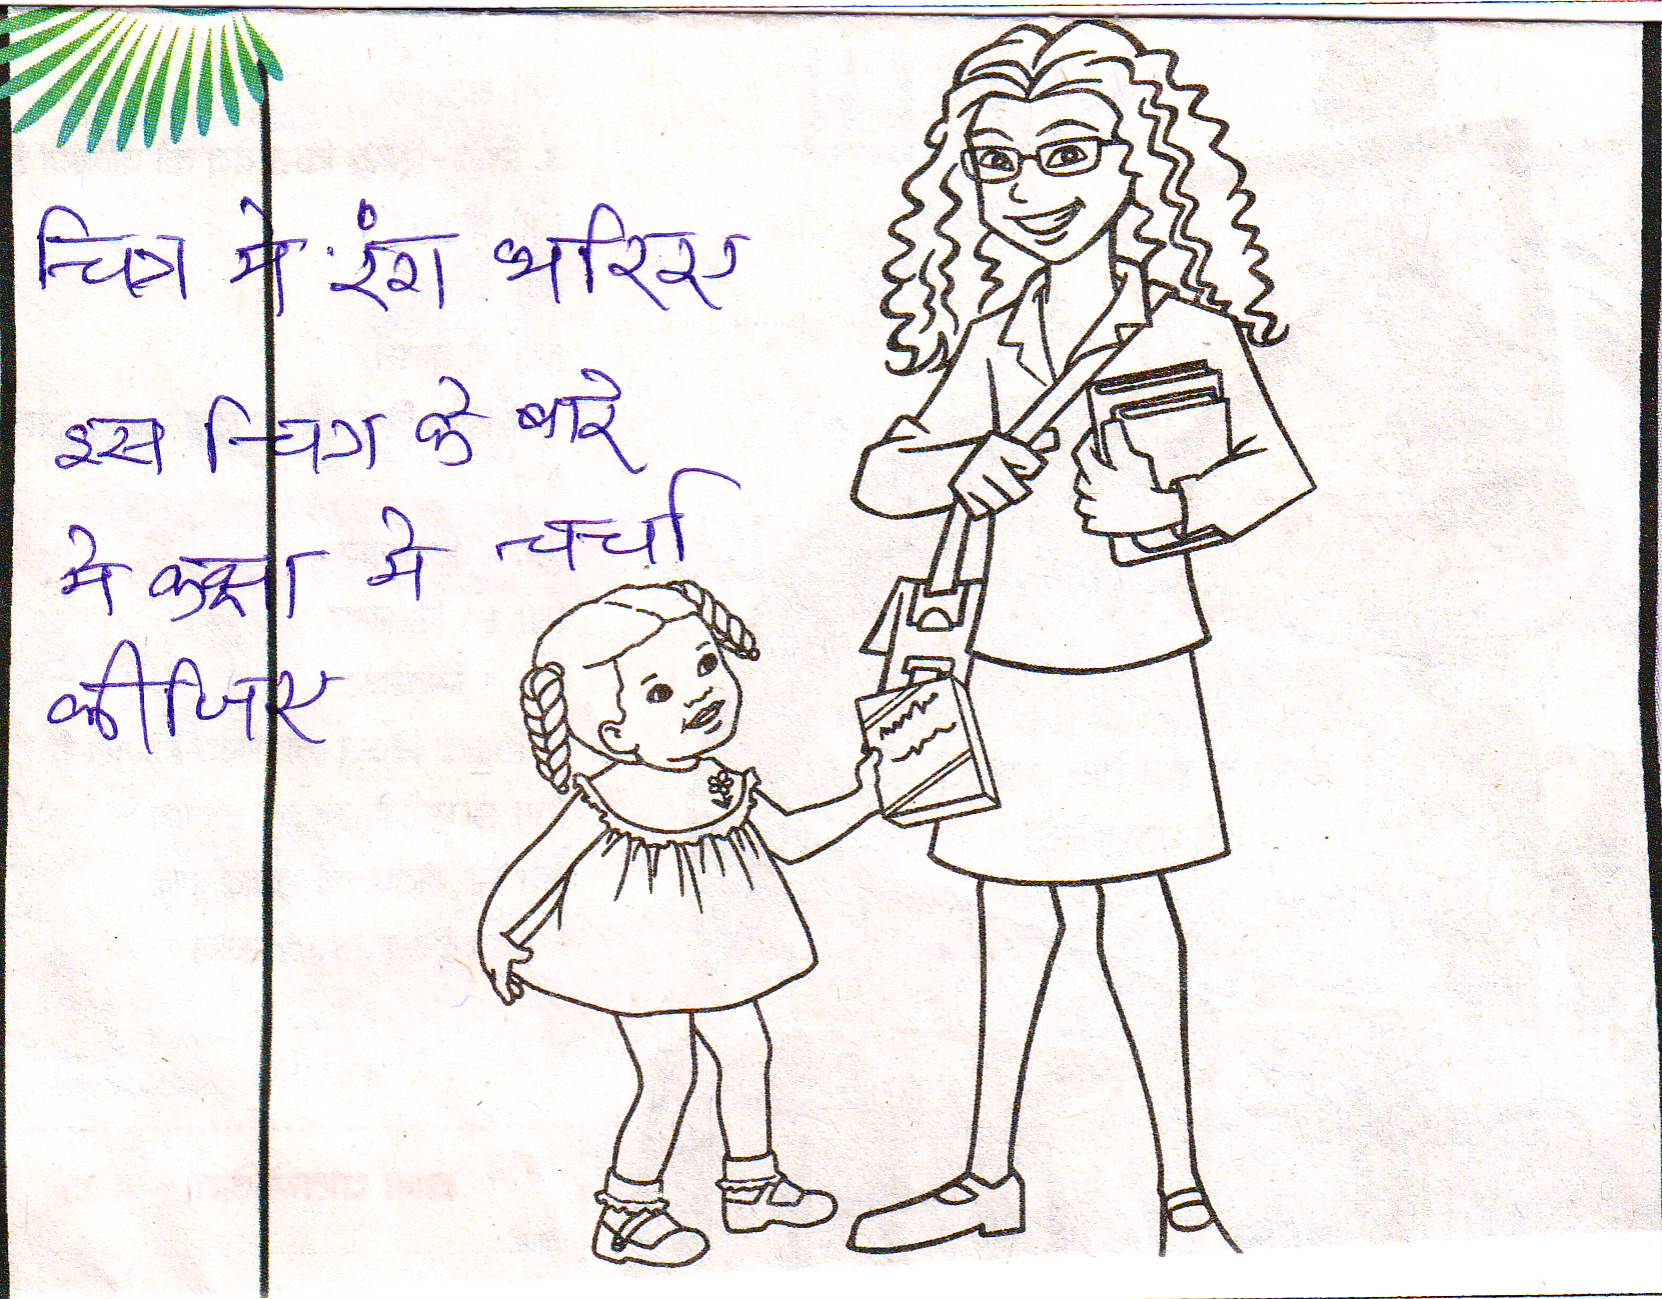 चित्र मे रंग भरिए
इस चित्र के बारे
मे कक्षा मे चर्चा
कीजिए